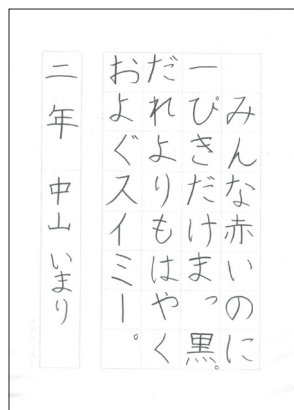 みんな赤いのに
一ぴきだけまっ黒。
だれよりもはやく
およぐスイミー。
二年 中山いまり